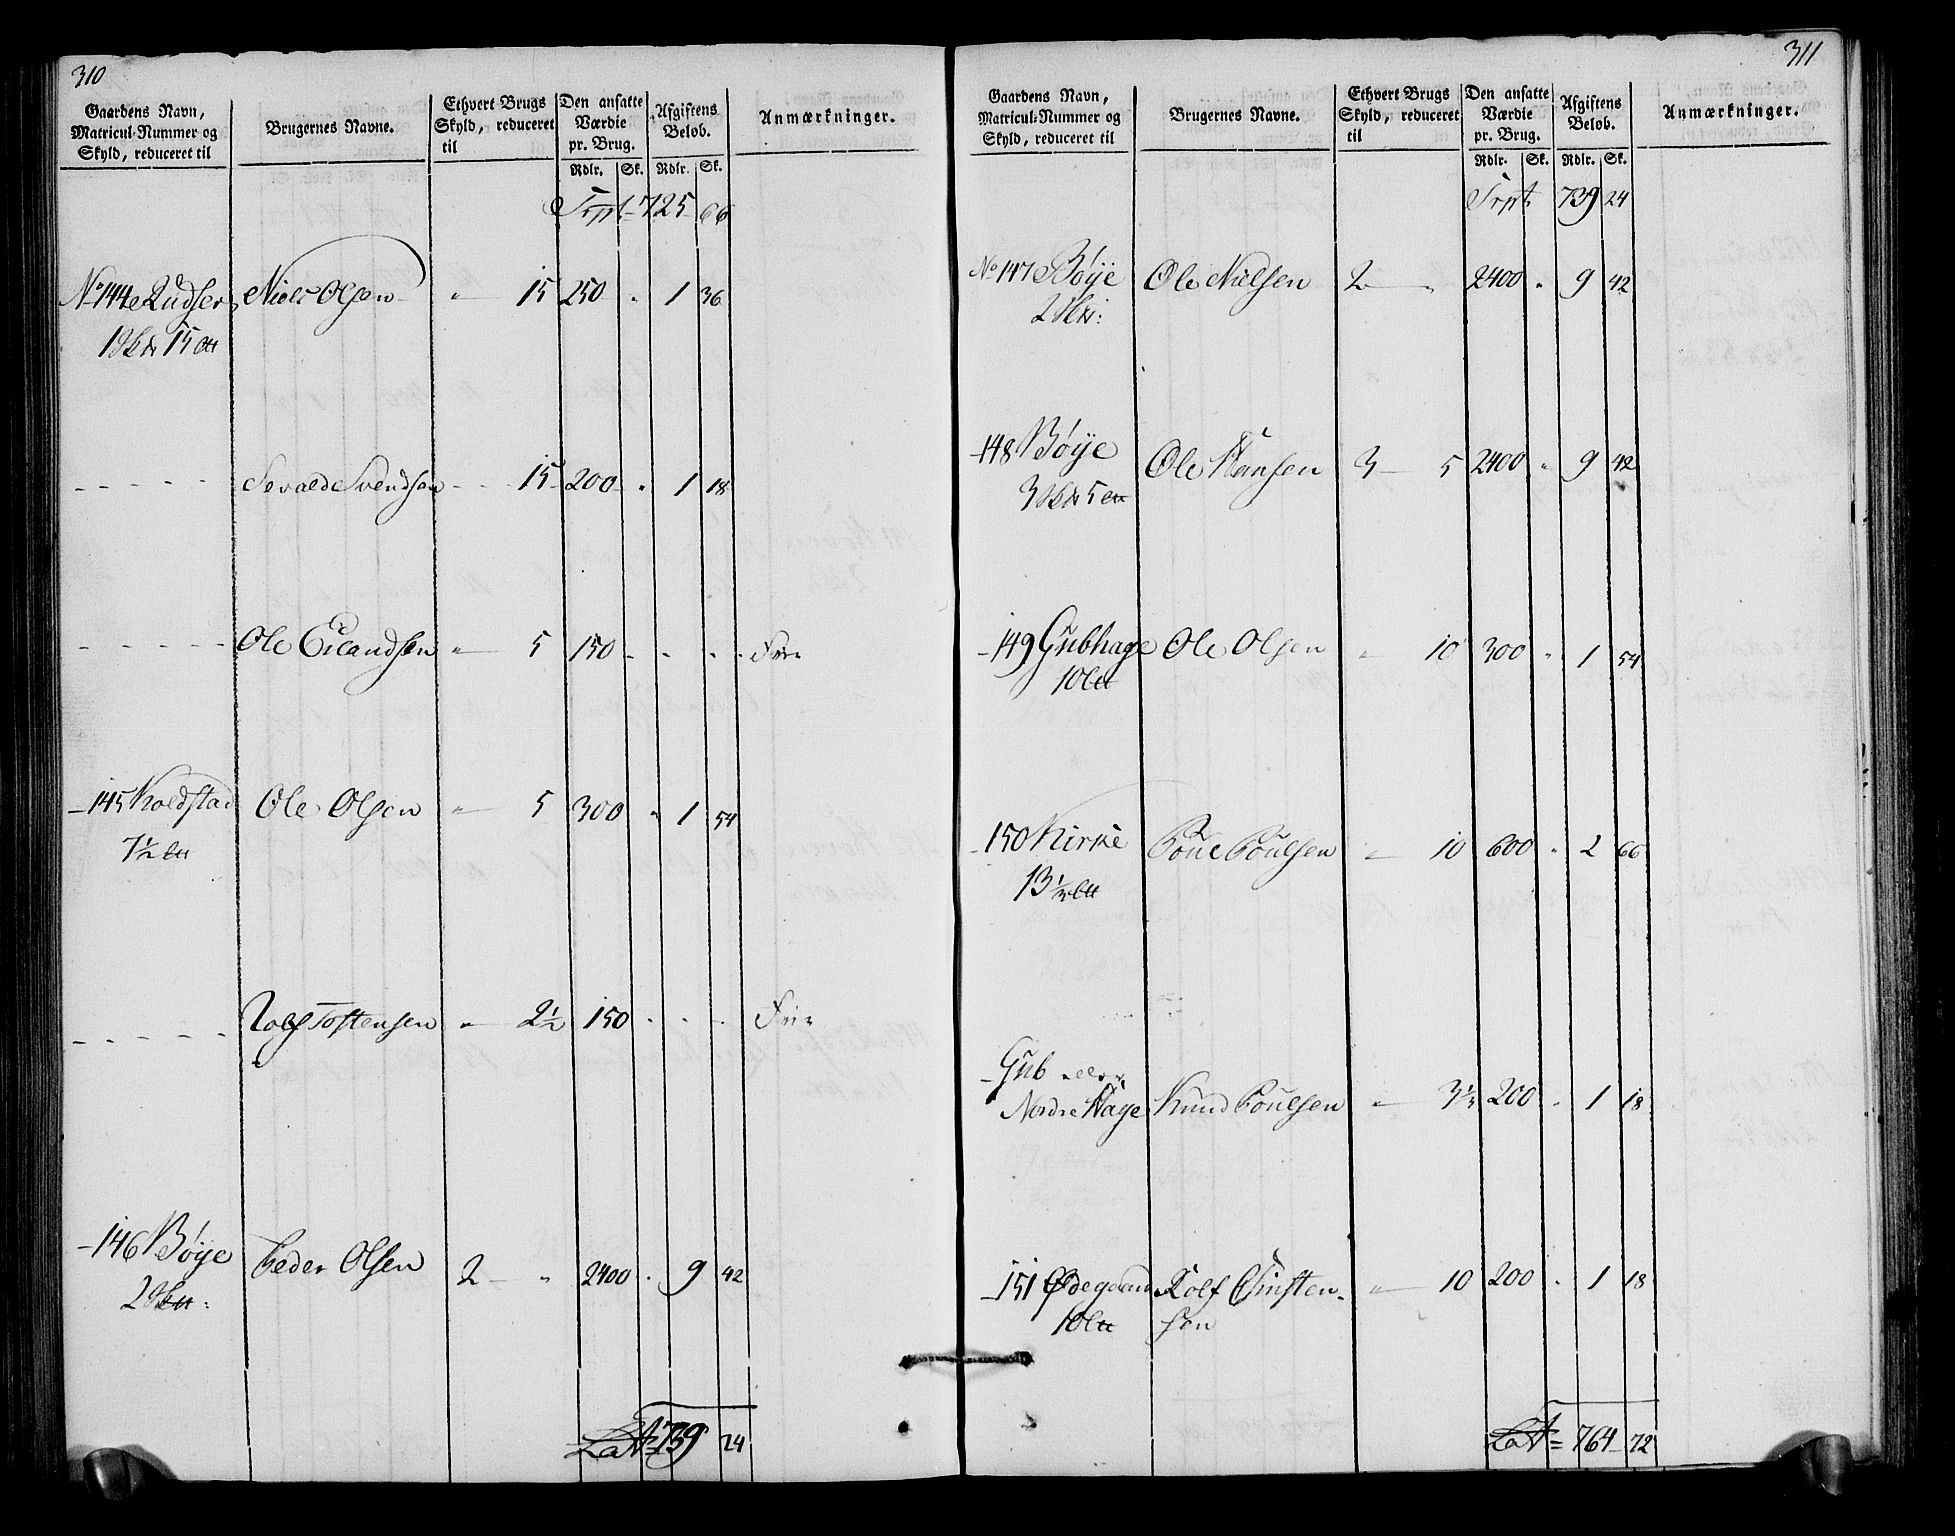 310
Gaardens Navn, Matricul-Nummer og Skyld, reduceret til
Brugernes Navne.
Ethvert Brugs Skyld, reduceret til
Den ansatte Værdie pr. Brug.
Afgiftens Beløb.
Anmærkninger.
Rdlr. Sk. Rdlr. Sk.
Trpt 725 66
No 144 Niels Olsen " 15 250 " 1 36
1 Skd 15
Sevald Svendsen 15 200 " 1 18
Ole Erlandsen " 5 150 - - - Frie
145 Koldstad Ole Olsen " 5 300 " 1 54
7½
Rolf Tostensen " 2½ 150 - - - Frie
146 Bøye Peder Olsen 2 " 2400 " 9 42
2
Lat 739 24
311
Gaardens Navn, Matricul-Nummer og Skyld, reduceret til
Brugernes Navne.
Ethvert Brugs Skyld, reduceret til
Den ansatte Værdie pr. Brug.
Afgiftens Beløb.
Anmærkninger.
Rdlr. Sk. Rdlr. Sk.
Trpt 739 24
No 147 Bøye Ole Nielsen 2 " 2400 " 9 42
2
148 Bøye Ole Hansen 3 5 2400 " 9 42
3 5
149 Gubhage Ole Olsen " 10 300 " 1 54
10
150 Kirke Poul Poulsen " 10 600 " 2 66
13⅓
Gub eller
Nordre Hage Knud Poulsen " 3⅓ 200 " 1 18
151 Ødegaard Rolf Christen-
10 sen " 10 200 " 1 18
Lat 764 72